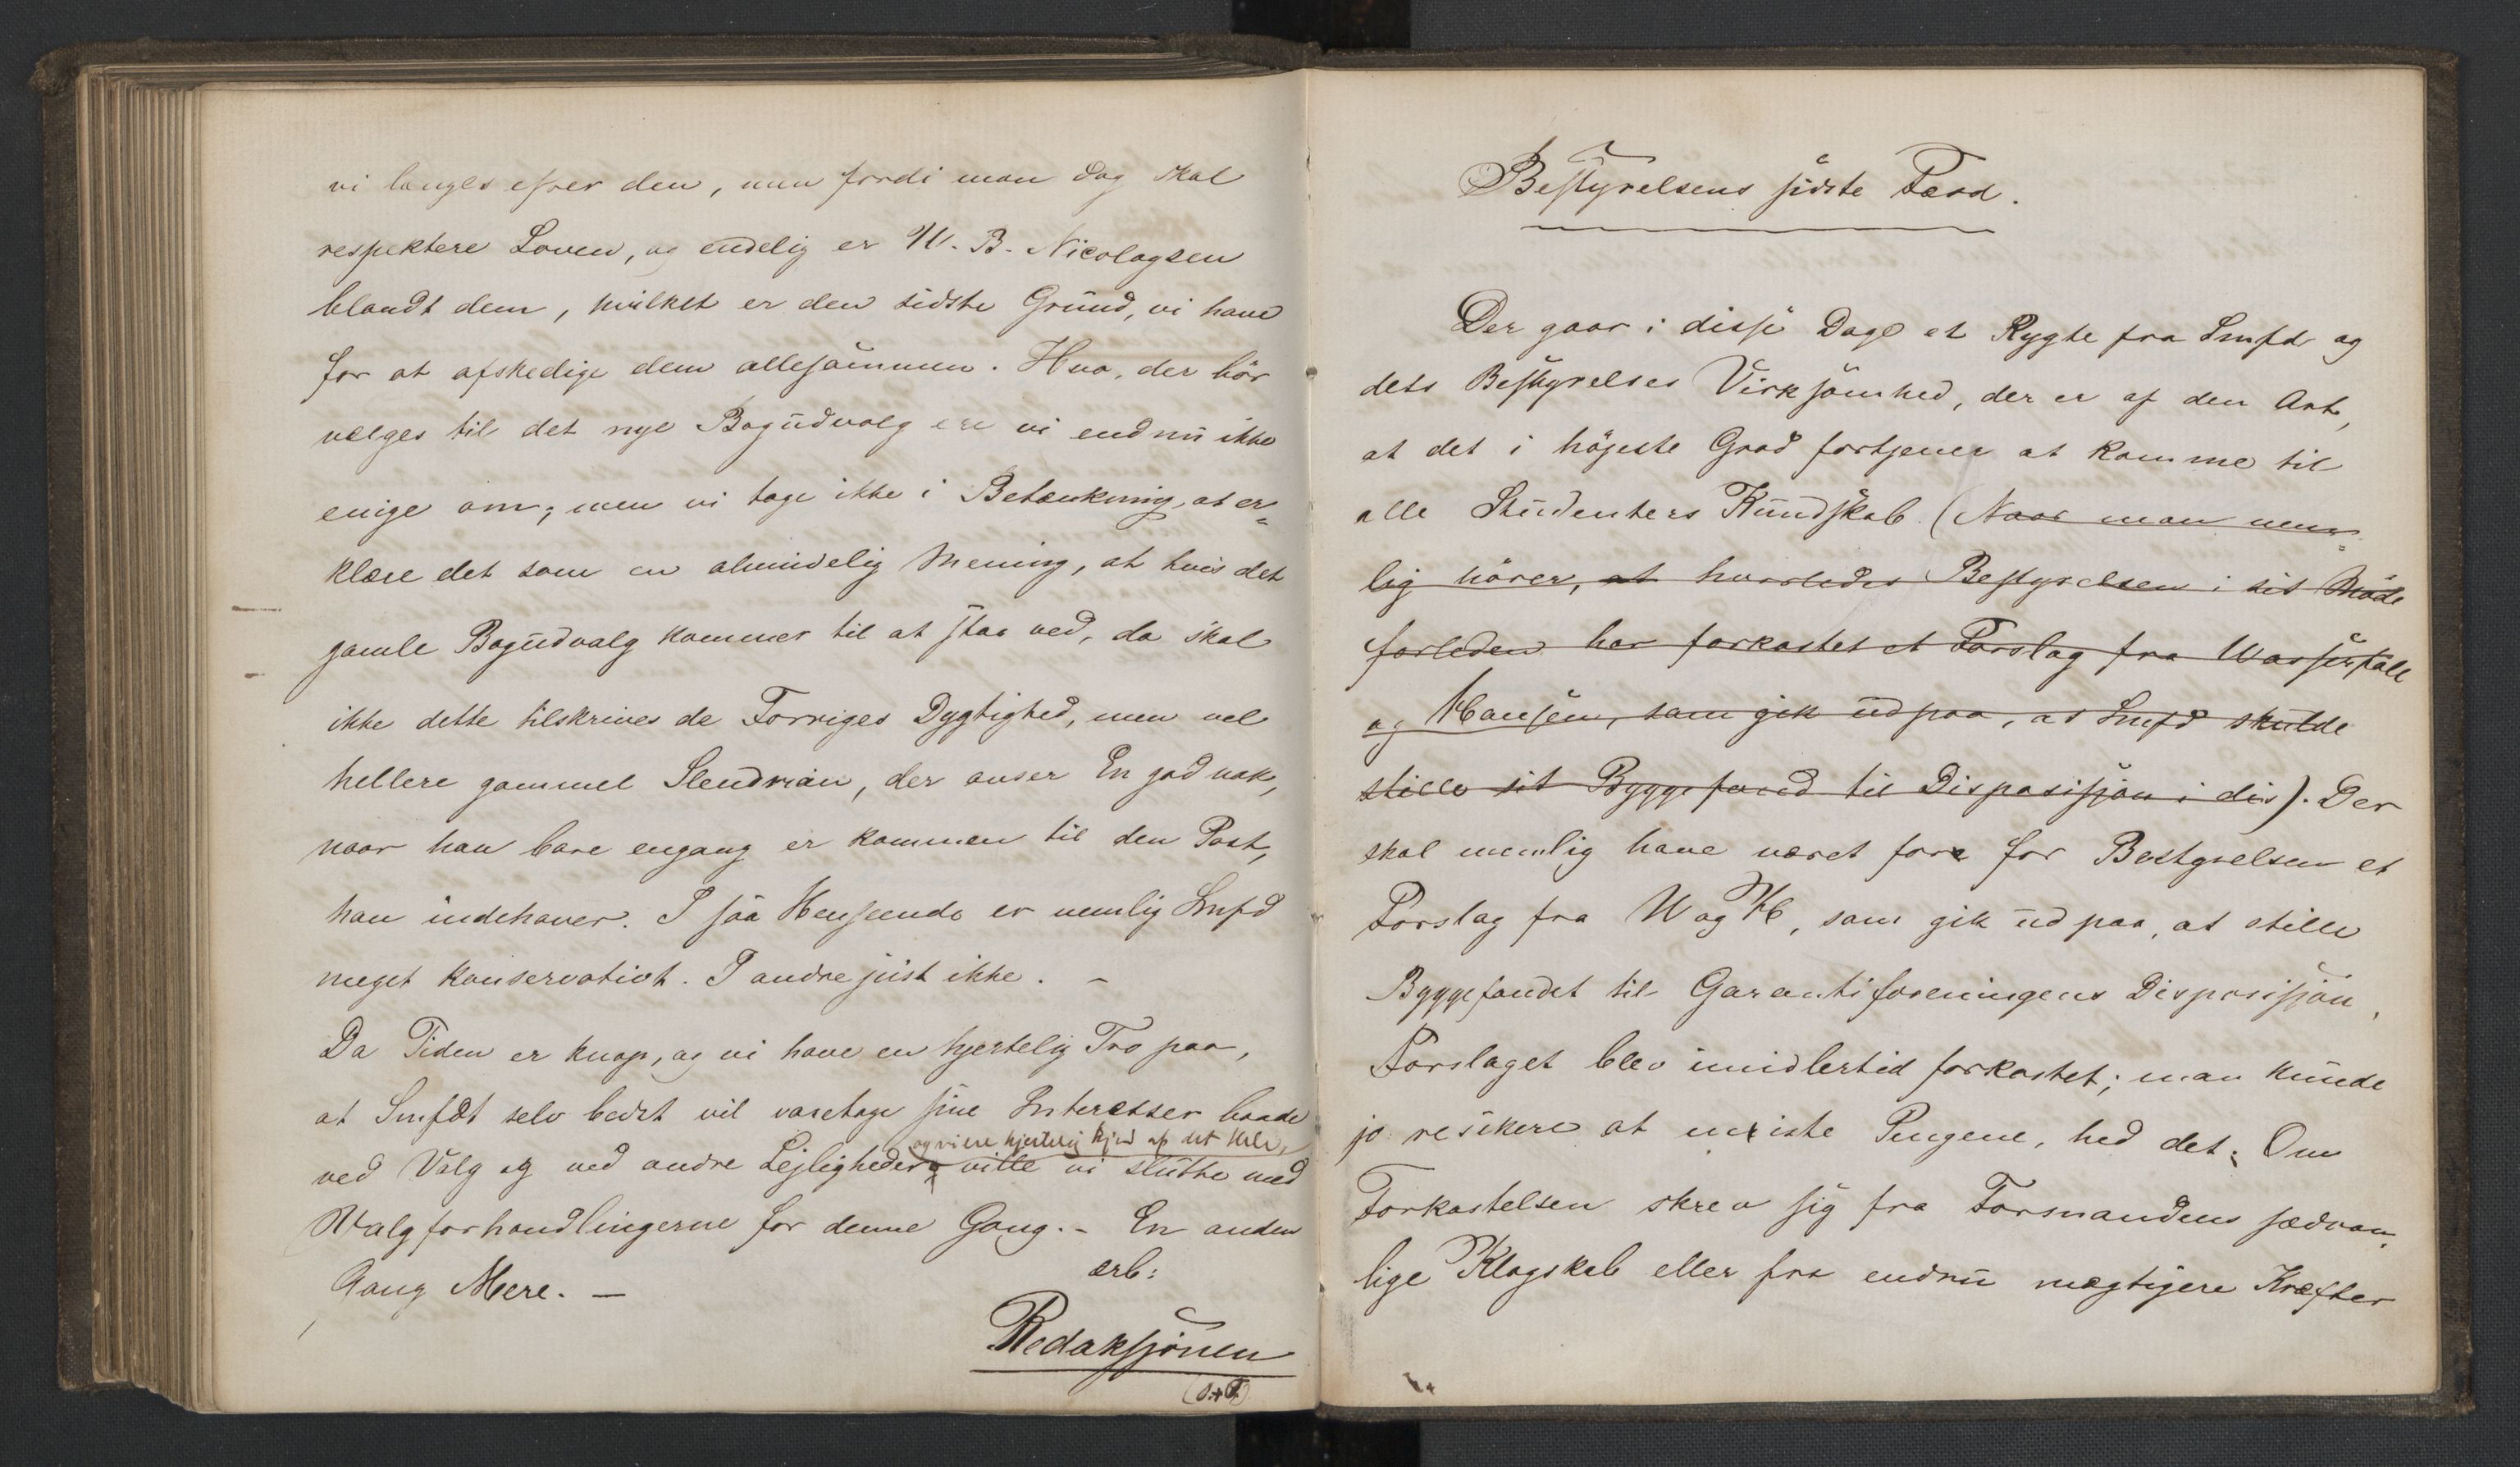 vi længes efter den, men fordi man dog skal
respektere Loven, og endelig er W. B. Nicolaysen
blandt dem, hvilket er den sidste Grund, vi have
for at afskedige dem allesammen. Hvo, der bör
vælges til det nye Bogudvalg ere vi endnu ikke
enige om; men vi tage ikke i Betænkning, at er=
klære det som en almindelig Mening, at hvis det
gamle Bogudvalg kommer til at staa ved, da skal
ikke dette tilskrives de Forriges Dygtighed, men vel
hellere gammel Slendrian, der anser En god nok,
naar han bare engang er kommen til den Post,
han indehaver. I saa Henseende er nemlig Smfd
meget konservativt. I andre just ikke. –
Da Tiden er knap, og vi have en hjertelig Tro paa,
at Smfdt selv bedst vil varetage sine Interesser baade
og vi ere hjertelig kjed af det Hele,
ved Valg og ved andre Lejligheder, ville vi slutte med
Valgforhandlingerne for denne Gang. – En anden
Gang Mere. –
ærb:
Redaksjonen
(S+F)
Bestyrelsens sidste Færd.
Der gaar i disse Dage et Rygte fra Smfd og
dets Bestyrelses Virksomhed, der er af den Art,
at det i höjeste Grad fortjener at komme til
alle Studenters Kundskab. (Naar man nem=
lig hörer, at hvorledes Bestyrelsen i sit Möde
forleden har forkastet et Forslag fra Wasserfall
og Hansen, som gik ud paa, at Smfd skulde
stille sit Byggefond til Disposisjon i dis). Der
skal nemlig have været fore for Bestyrelsen et
Forslag fra W og H, som gik ud paa, at stille
Byggefondet til Garantiforeningens Disposisjon.
Forslaget blev imidlertid forkastet; man kunde
jo resikere at miste Pengene, hed det. Om
Forkastelsen skrev sig fra Formandens sædvan
lige Klogskab eller fra endnu mægtigere Kræfter